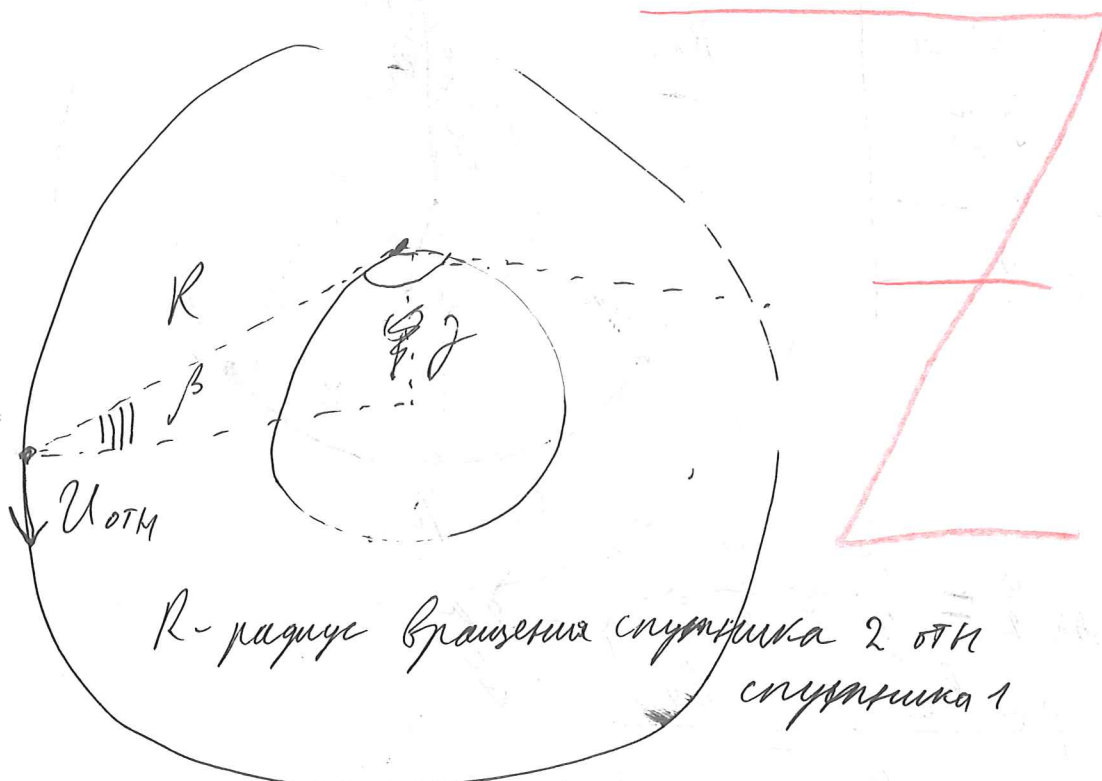 R
β
γ
Uотн
R - радиус вращения спутника 2 отн
спутника 1